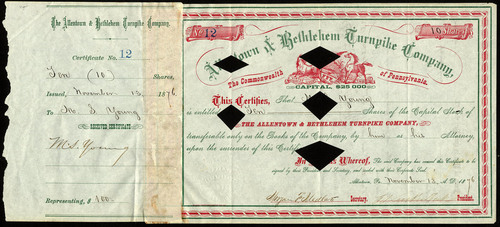 The Allentown & Bethlehem Turnpike Company.
Certificate No. 12
Ten (10) Shares,
Issued, November 13, 1876
To M. S. Young
RECEIVED CERTIFICATE
M. S. Young
Representing, $ 100
No. 12
10 Shares
Allentown & Bethlehem Turnpike Company,
The Commonwealth of Pennsylvania.
CAPITAL, $25 000
This Certifies, That Young
is entitled Ten Shares of the Capital Stock of
THE ALLENTOWN & BETHLEHEM TURNPIKE COMPANY,
transferable only on the Books of the Company, by him or his Attorney
upon the surrender of this Certificate
In Witness Whereof, The said Company has caused this Certificate to be
signed by their President and Secretary, and sealed with their Corporate Seal.
Allentown, Pa. November 13, A.D. 1876
Secretary. President.